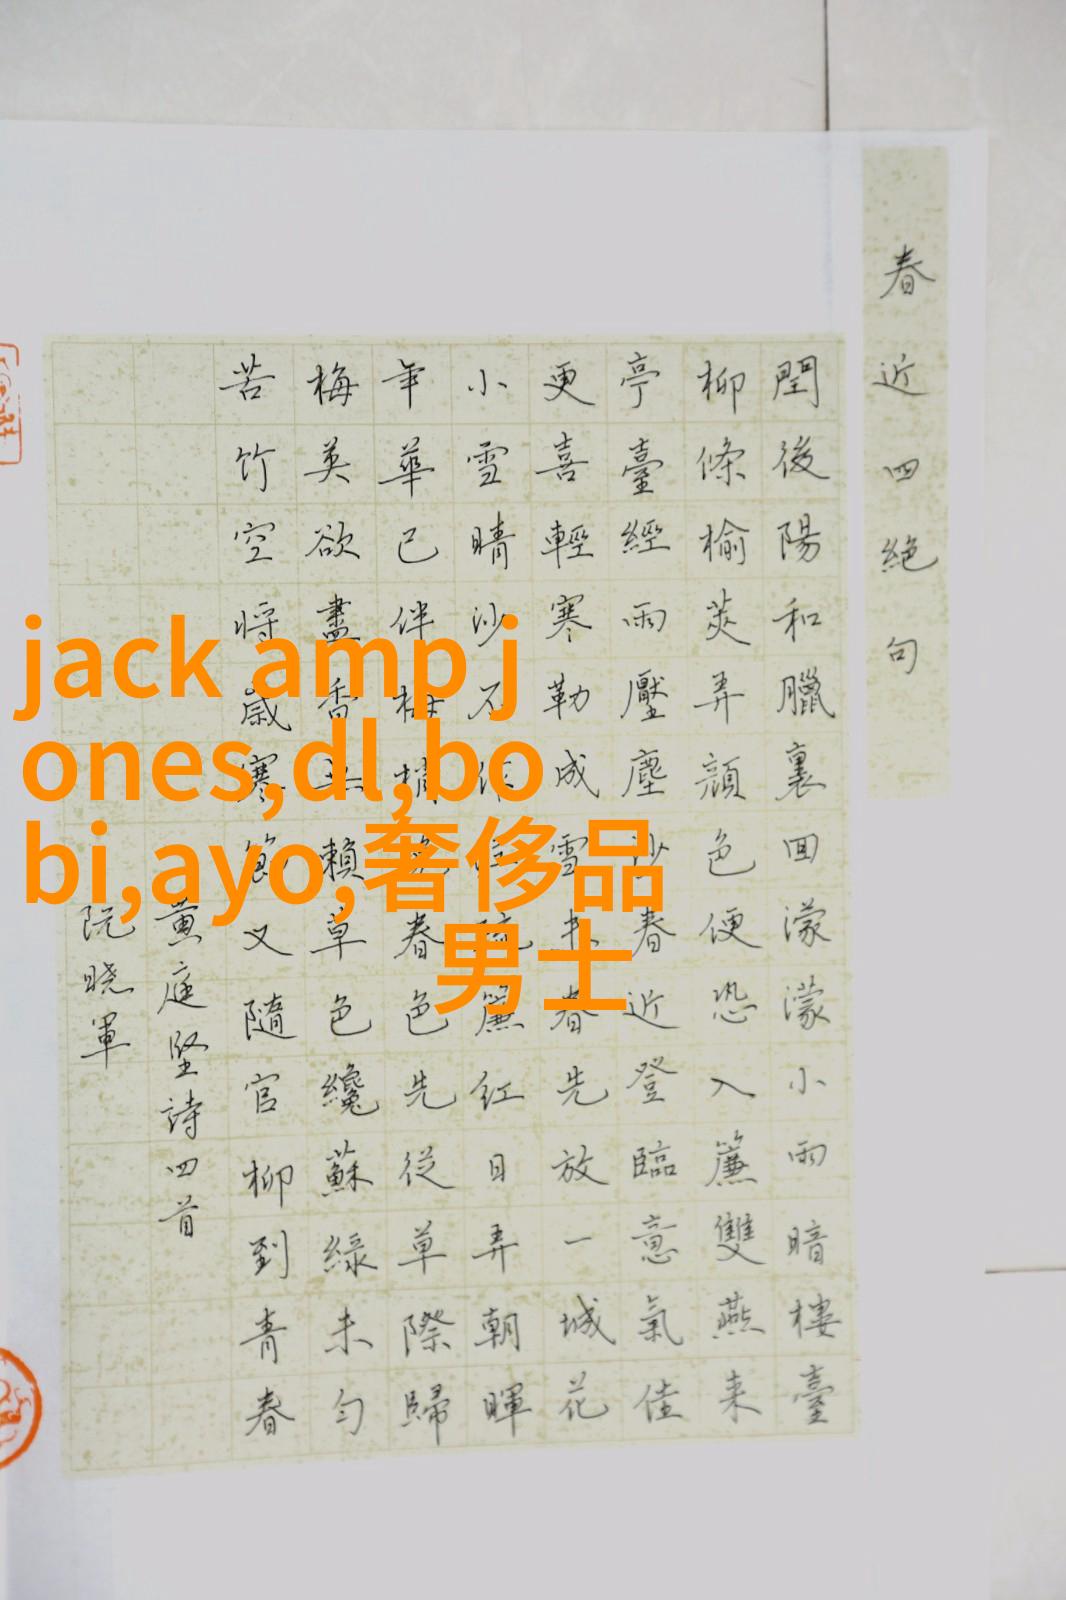 春近四絕句
閏後陽和臘裏回濛濛小雨暗樓臺
柳條榆莢弄顏色便恐入簾雙燕來
亭臺經雨壓塵沙春近登臨意氣佳
更喜輕寒勒成雪未春先放一城花
小雪晴沙不作泥疏簾紅日弄朝暉
年華已伴梅梢晚春色先從草際歸
梅英欲盡香無賴草色纔蘇綠未勻
苦竹空將歲寒節又隨官柳到青春
黄庭堅詩四首
阮晓軍
jack amp j
ones,dl,bo
bi,ayo,奢侈品
男士